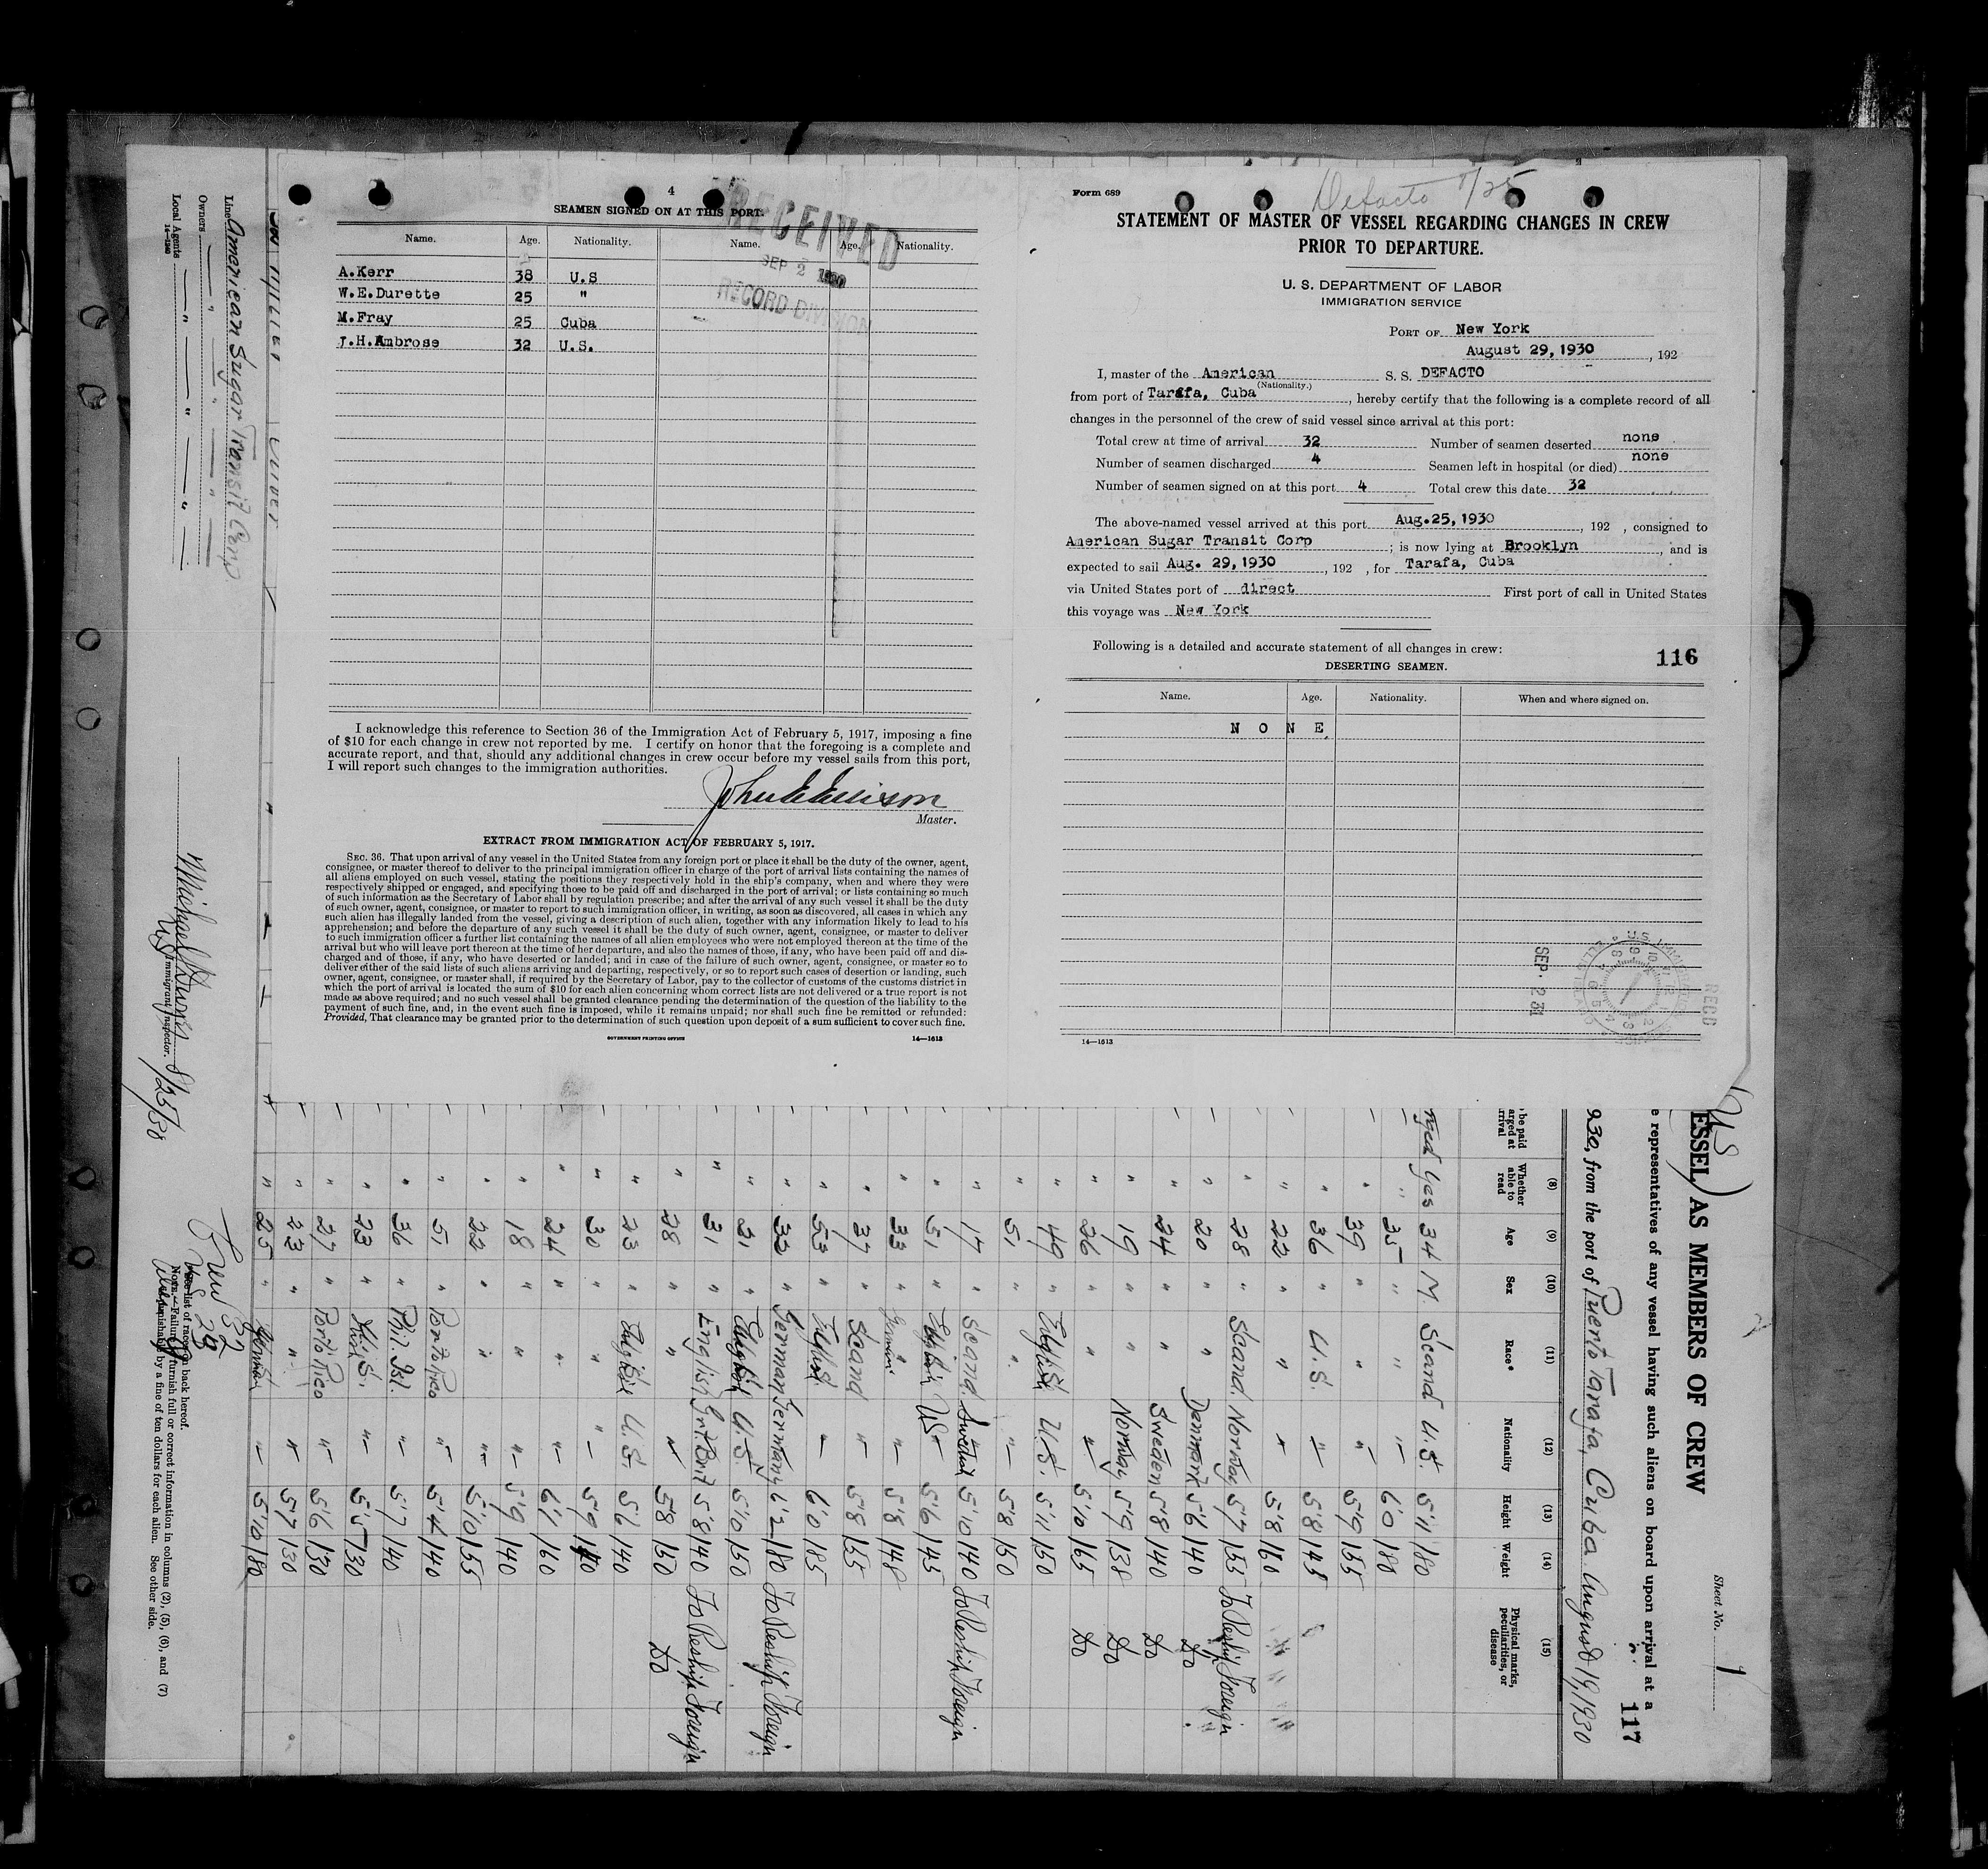 4
SEAMEN SIGNED ON AT THIS PORT.
RECEIVED
SEP 2 1930
RECORD DIVISION
Name. Age. Nationality. Name. Age. Nationality.
A.Kerr 38 U.S
W.E.Durette 25 "
M.Fray 25 Cuba
J.H.Ambrose 32 U.S.
I acknowledge this reference to Section 36 of the Immigration Act of February 5, 1917, imposing a fine
of $10 for each change in crew not reported by me. I certify on honor that the foregoing is a complete and
accurate report, and that, should any additional changes in crew occur before my vessel sails from this port,
I will report such changes to the immigration authorities.
Master.
EXTRACT FROM IMMIGRATION ACT OF FEBRUARY 5, 1917.
SEC. 36. That upon arrival of any vessel in the United States from any foreign port or place it shall be the duty of the owner, agent,
consignee, or master thereof to deliver to the principal immigration officer in charge of the port of arrival lists containing the names of
all aliens employed on such vessel, stating the positions they respectively hold in the ship's company, when and where they were
respectively shipped or engaged, and specifying those to be paid off and discharged in the port of arrival; or lists containing so much
of such information as the Secretary of Labor shall by regulation prescribe; and after the arrival of any such vessel it shall be the duty
of such owner, agent, consignee, or master to report to such immigration officer, in writing, as soon as discovered, all cases in which any
such alien has illegally landed from the vessel, giving a description of such alien, together with any information likely to lead to his
apprehension; and before the departure of any such vessel it shall be the duty of such owner, agent, consignee, or master to deliver
to such immigration officer a further list containing the names of all alien employees who were not employed thereon at the time of the
arrival but who will leave port thereon at the time of her departure, and also the names of those, if any, who have been paid off and dis-
charged and of those, if any, who have deserted or landed; and in case of the failure of such owner, agent, consignee, or master so to
deliver either of the said lists of such aliens arriving and departing, respectively, or so to report such cases of desertion or landing, such
owner, agent, consignee, or master shall, if required by the Secretary of Labor, pay to the collector of customs of the customs district in
which the port of arrival is located the sum of $10 for each alien concerning whom correct lists are not delivered or a true report is not
made as above required; and no such vessel shall be granted clearance pending the determination of the question of the liability to the
payment of such fine, and, in the event such fine is imposed, while it remains unpaid; nor shall such fine be remitted or refunded:
Provided, That clearance may be granted prior to the determination of such question upon deposit of a sum sufficient to cover such fine.
GOVERNMENT PRINTING OFFICE 14—1613
Form 689
Defacto 8/25
STATEMENT OF MASTER OF VESSEL REGARDING CHANGES IN CREW
PRIOR TO DEPARTURE.
U. S. DEPARTMENT OF LABOR
IMMIGRATION SERVICE
PORT OF New York
August 29, 1930, 192
I, master of the American S. S. DEFACTO
(Nationality.)
from port of Tarafa, Cuba, hereby certify that the following is a complete record of all
changes in the personnel of the crew of said vessel since arrival at this port:
Total crew at time of arrival 32 Number of seamen deserted none
Number of seamen discharged 4 Seamen left in hospital (or died) none
Number of seamen signed on at this port 4 Total crew this date 32
The above-named vessel arrived at this port Aug.25, 1930, 192 , consigned to
American Sugar Transit Corp ; is now lying at Brooklyn , and is
expected to sail Aug. 29, 1930 , 192 , for Tarafa, Cuba
via United States port of direct First port of call in United States
this voyage was New York
Following is a detailed and accurate statement of all changes in crew:
116
DESERTING SEAMEN.
Name. Age. Nationality. When and where signed on.
N O N E
SEP. 2 31
RECD
14—1613
Sheet No. 1
ESSEL) AS MEMBERS OF CREW
e representatives of any vessel having such aliens on board upon arrival at a
117
930, from the port of Puerto Tarafa, Cuba August 19, 1930
(8) (9) (10) (11) (12) (13) (14) (15)
Whether able to read Age Sex Race* Nationality Height Weight Physical marks, peculiarities, or disease
Yes 34 M. Scand U.S. 5'11 180
" 35 " " " 6'0 180
" 39 " " " 5'9 155
" 36 " U.S. " 5'8 145
" 22 " " " 5'8 160
" 28 " Scand. Norway 5'7 155 To Reship Foreign
" 20 " " Denmark 5'6 140 Do
" 24 " " Sweden 5'8 140 Do
" 19 " " Norway 5'9 138 Do
" 26 " " " 5'10 165 Do
" 49 " English U.S. 5'11 150
" 51 " " " 5'8 150
" 17 " Scand. 5'10 140 To Reship Foreign
" 51 " English US 5'6 145
" 33 " German " 5'8 148
" 37 " Scand " 5'8 155
" 53 " English " 6'0 185
" 33 " German Germany 6'2 180 To Reship Foreign
" 21 " English U.S. 5'10 150
" 31 " English Grt Brit 5'8 140 To Reship Foreign
" 28 " " " 5'8 150 Do
" 23 " English U.S. 5'6 140
" 30 " " " 5'9 140
" 24 " " " 6'1 160
" 18 " " " 5'9 140
" 22 " " " 5'10 155
" 51 " Porto Rico " 5'4 140
" 36 " Phil. Isl. " 5'7 140
" 23 " U.S. " 5'5 130
" 27 " Porto Rico " 5'6 130
" 23 " " " 5'7 130
" 25 " " 5'10 180
Line American Sugar Transit Corp
Owners " "
Local Agents " " "
14—1240
Immigrant Inspector. 8/25/30
Crew 32
US 29
*See list of races on back hereof.
NOTE.—Failure to furnish full or correct information in columns (2), (5), (6), and (7)
is punishable by a fine of ten dollars for each alien. See other side.